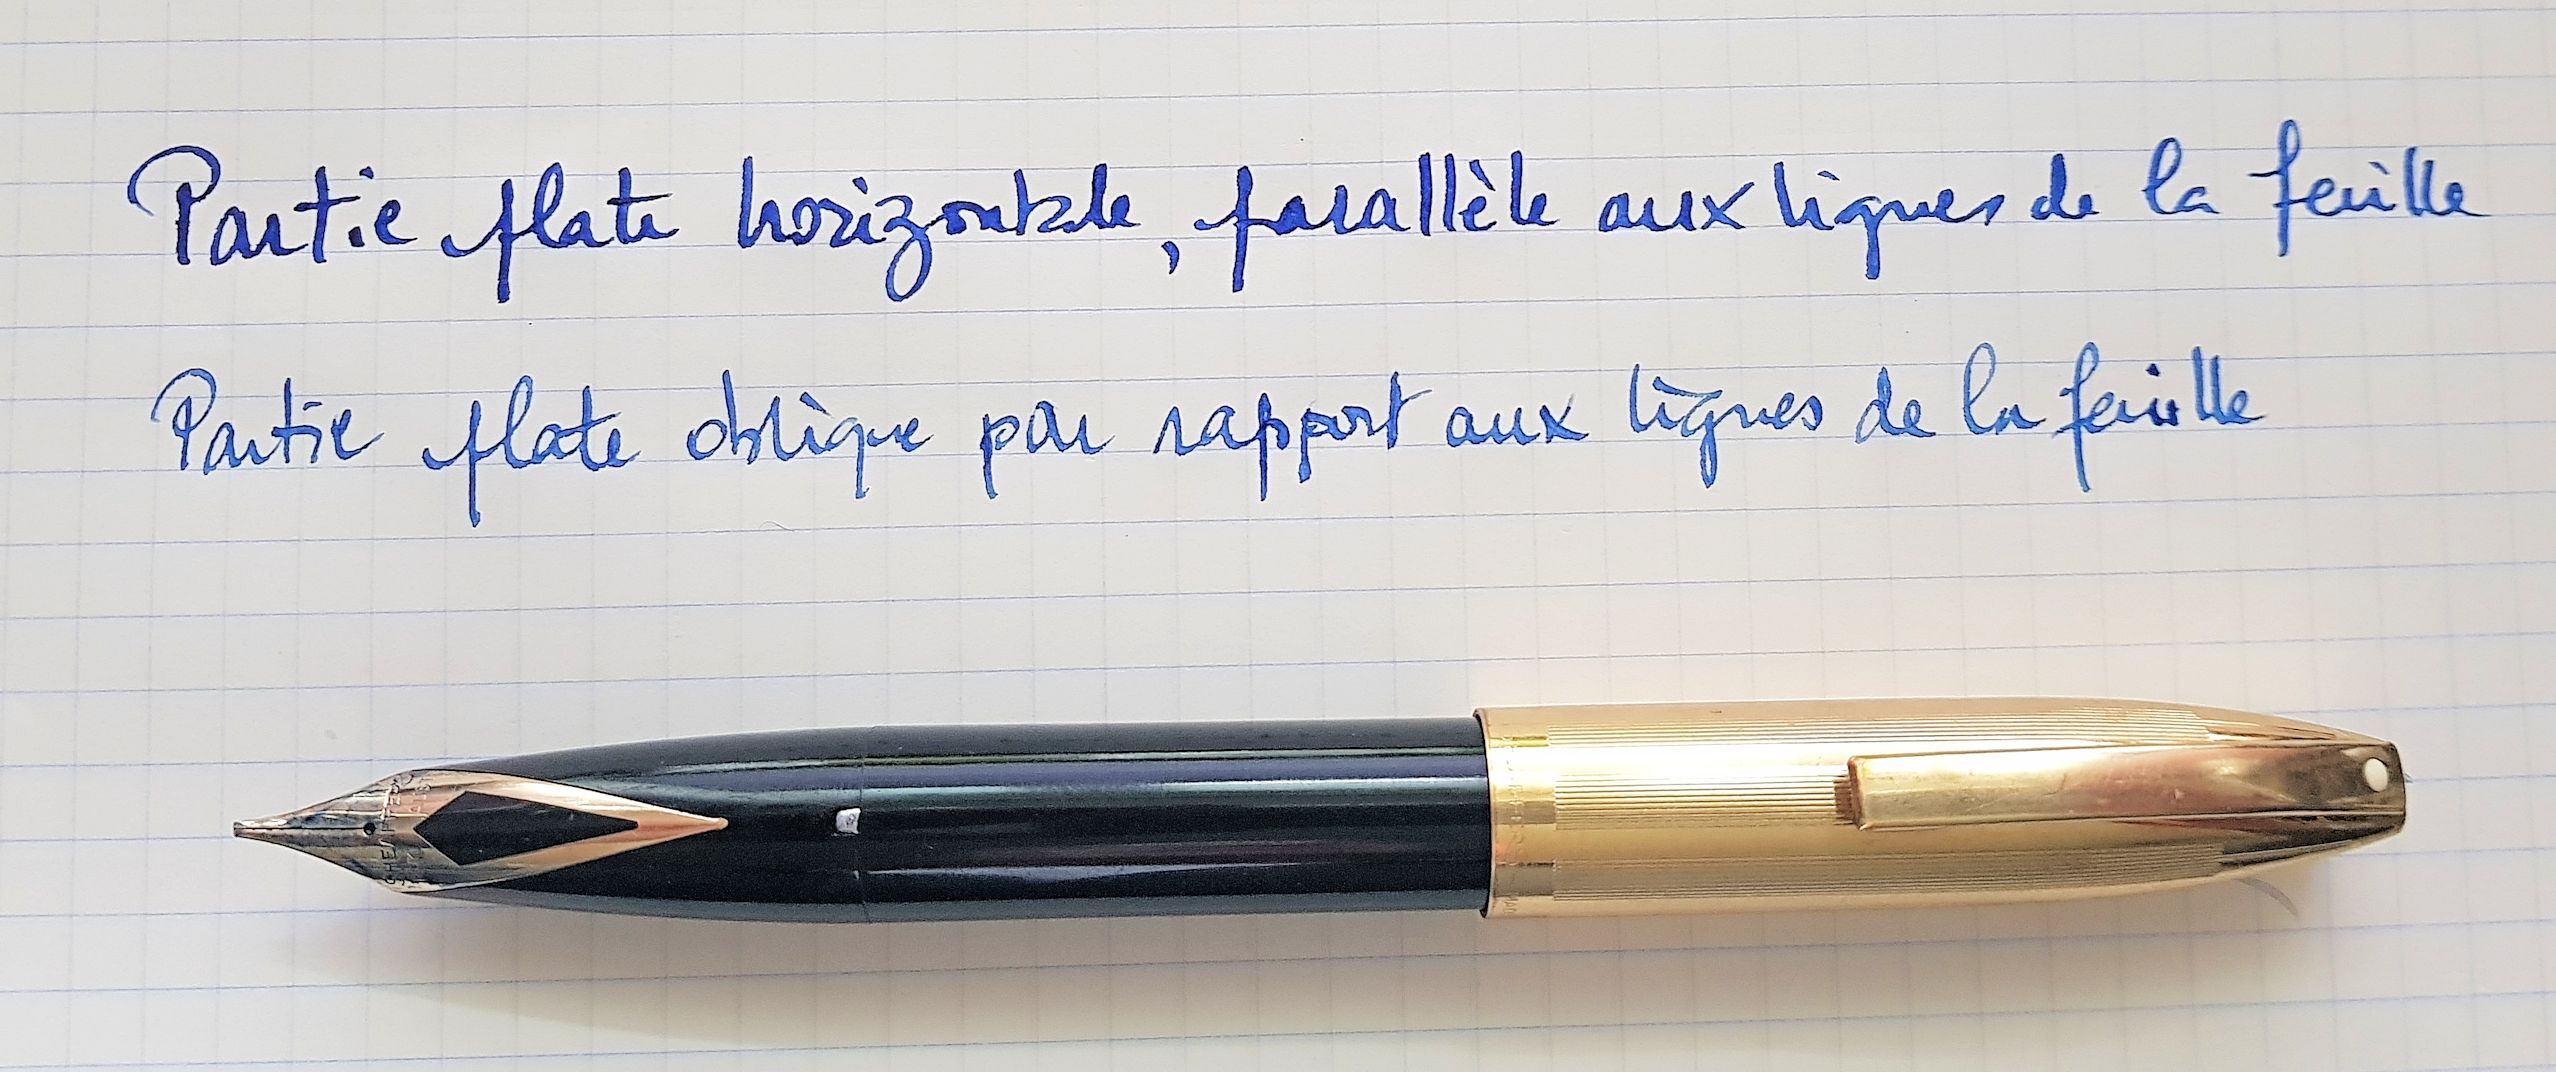 Partie plate horizontale, parallèle aux lignes de la feuille
Partie plate oblique par rapport aux lignes de la feuille
SHEAFFER'S